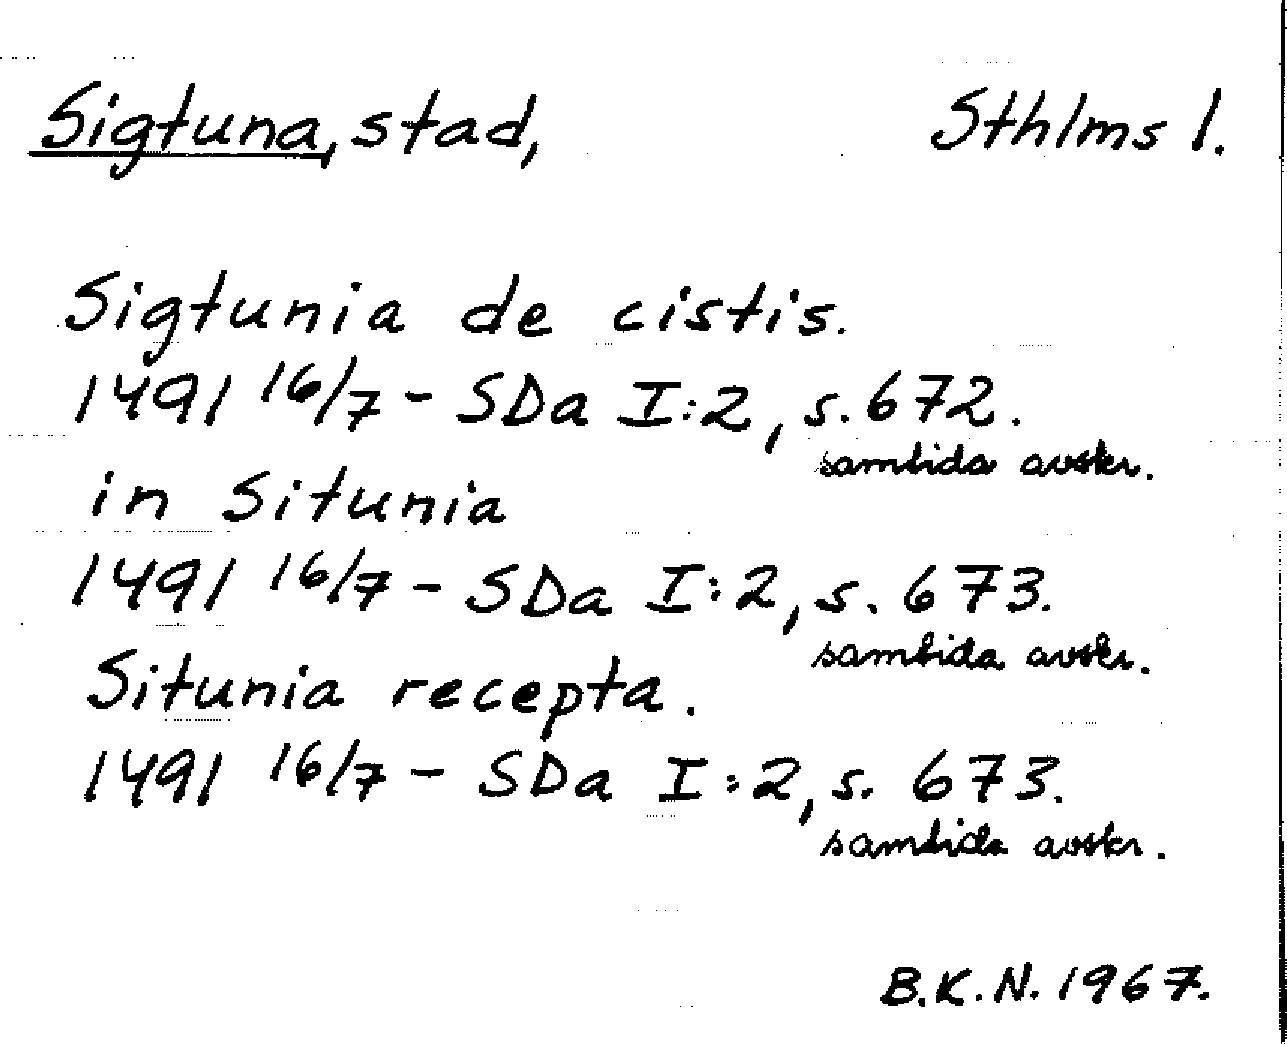 Sigtuna, stad, Sthlms l.
Sigtunia de cistis.
1491 16/7 - SDa I:2, s. 672.
samtida avskr.
in Situnia
1491 16/7 - SDa I:2, s. 673.
samtida avskr.
Situnia recepta.
1491 16/7 - SDa I:2, s. 673.
samtida avskr.
B.K.N. 1967.